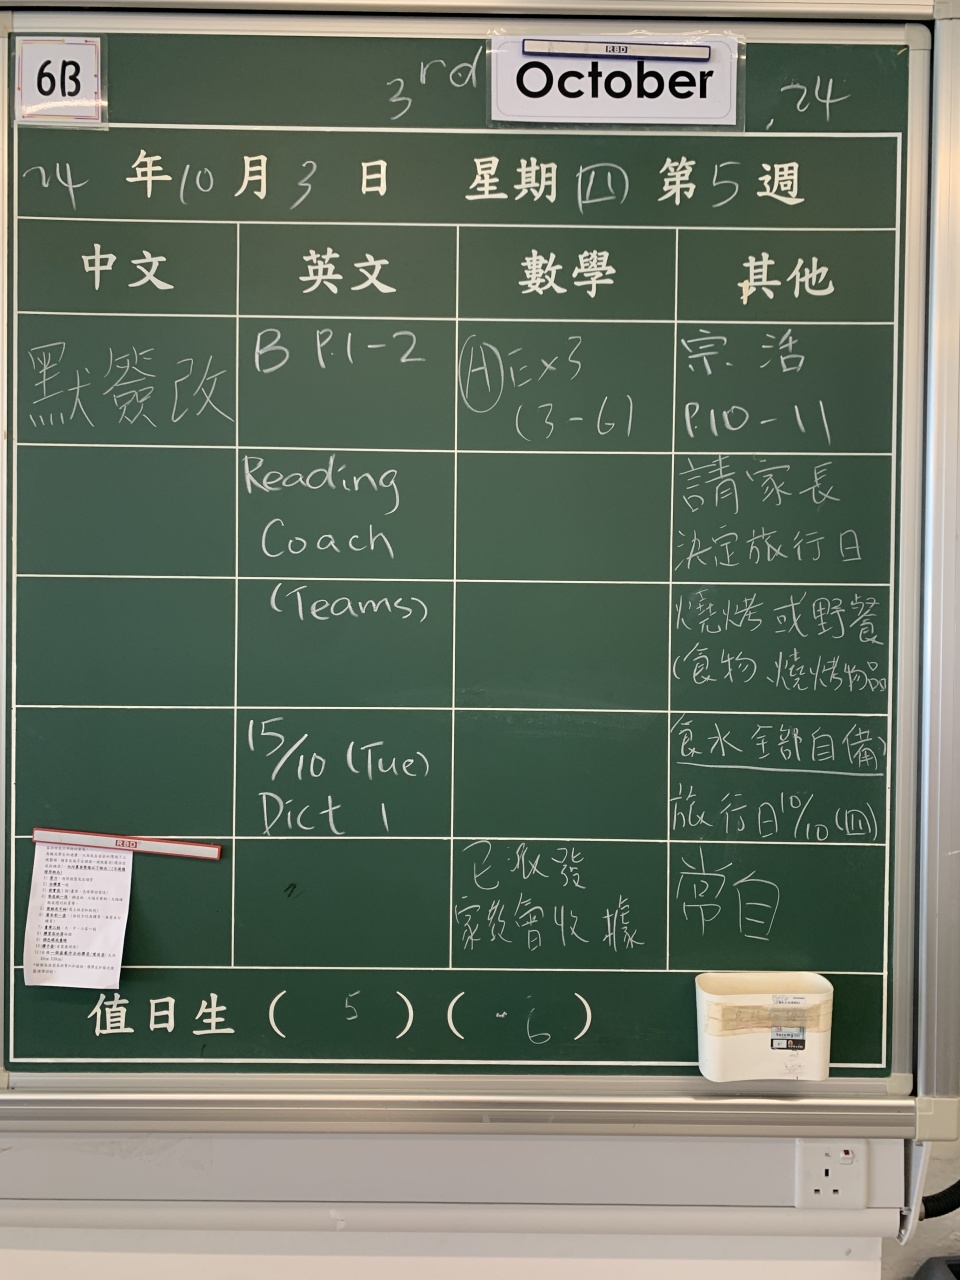 6B
3rd October , 24
RBD
24 年 10 月 3 日 星期 四 第 5 週
中文 英文 數學 其他
默簽改
B P.1-2
Reading
Coach
(Teams)
15/10 (Tue)
Dict 1
Ⓗ Ex3
(3-6)
已派發
家教會收據
宗.活
P.10-11
請家長
決定旅行日
燒烤或野餐
(食物、燒烤物品
食水全部自備)
旅行日10/10(四)
常自
RBD
值日生 ( 5 ) ( 6 )